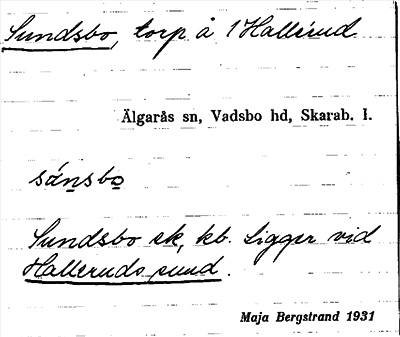 Sundsbo, torp å 1 Hallerud
Älgarås sn, Vadsbo hd, Skarab. l.
sánsbo
Sundsbo ek, kb. Ligger vid
Halleruds sund.
Maja Bergstrand 1931